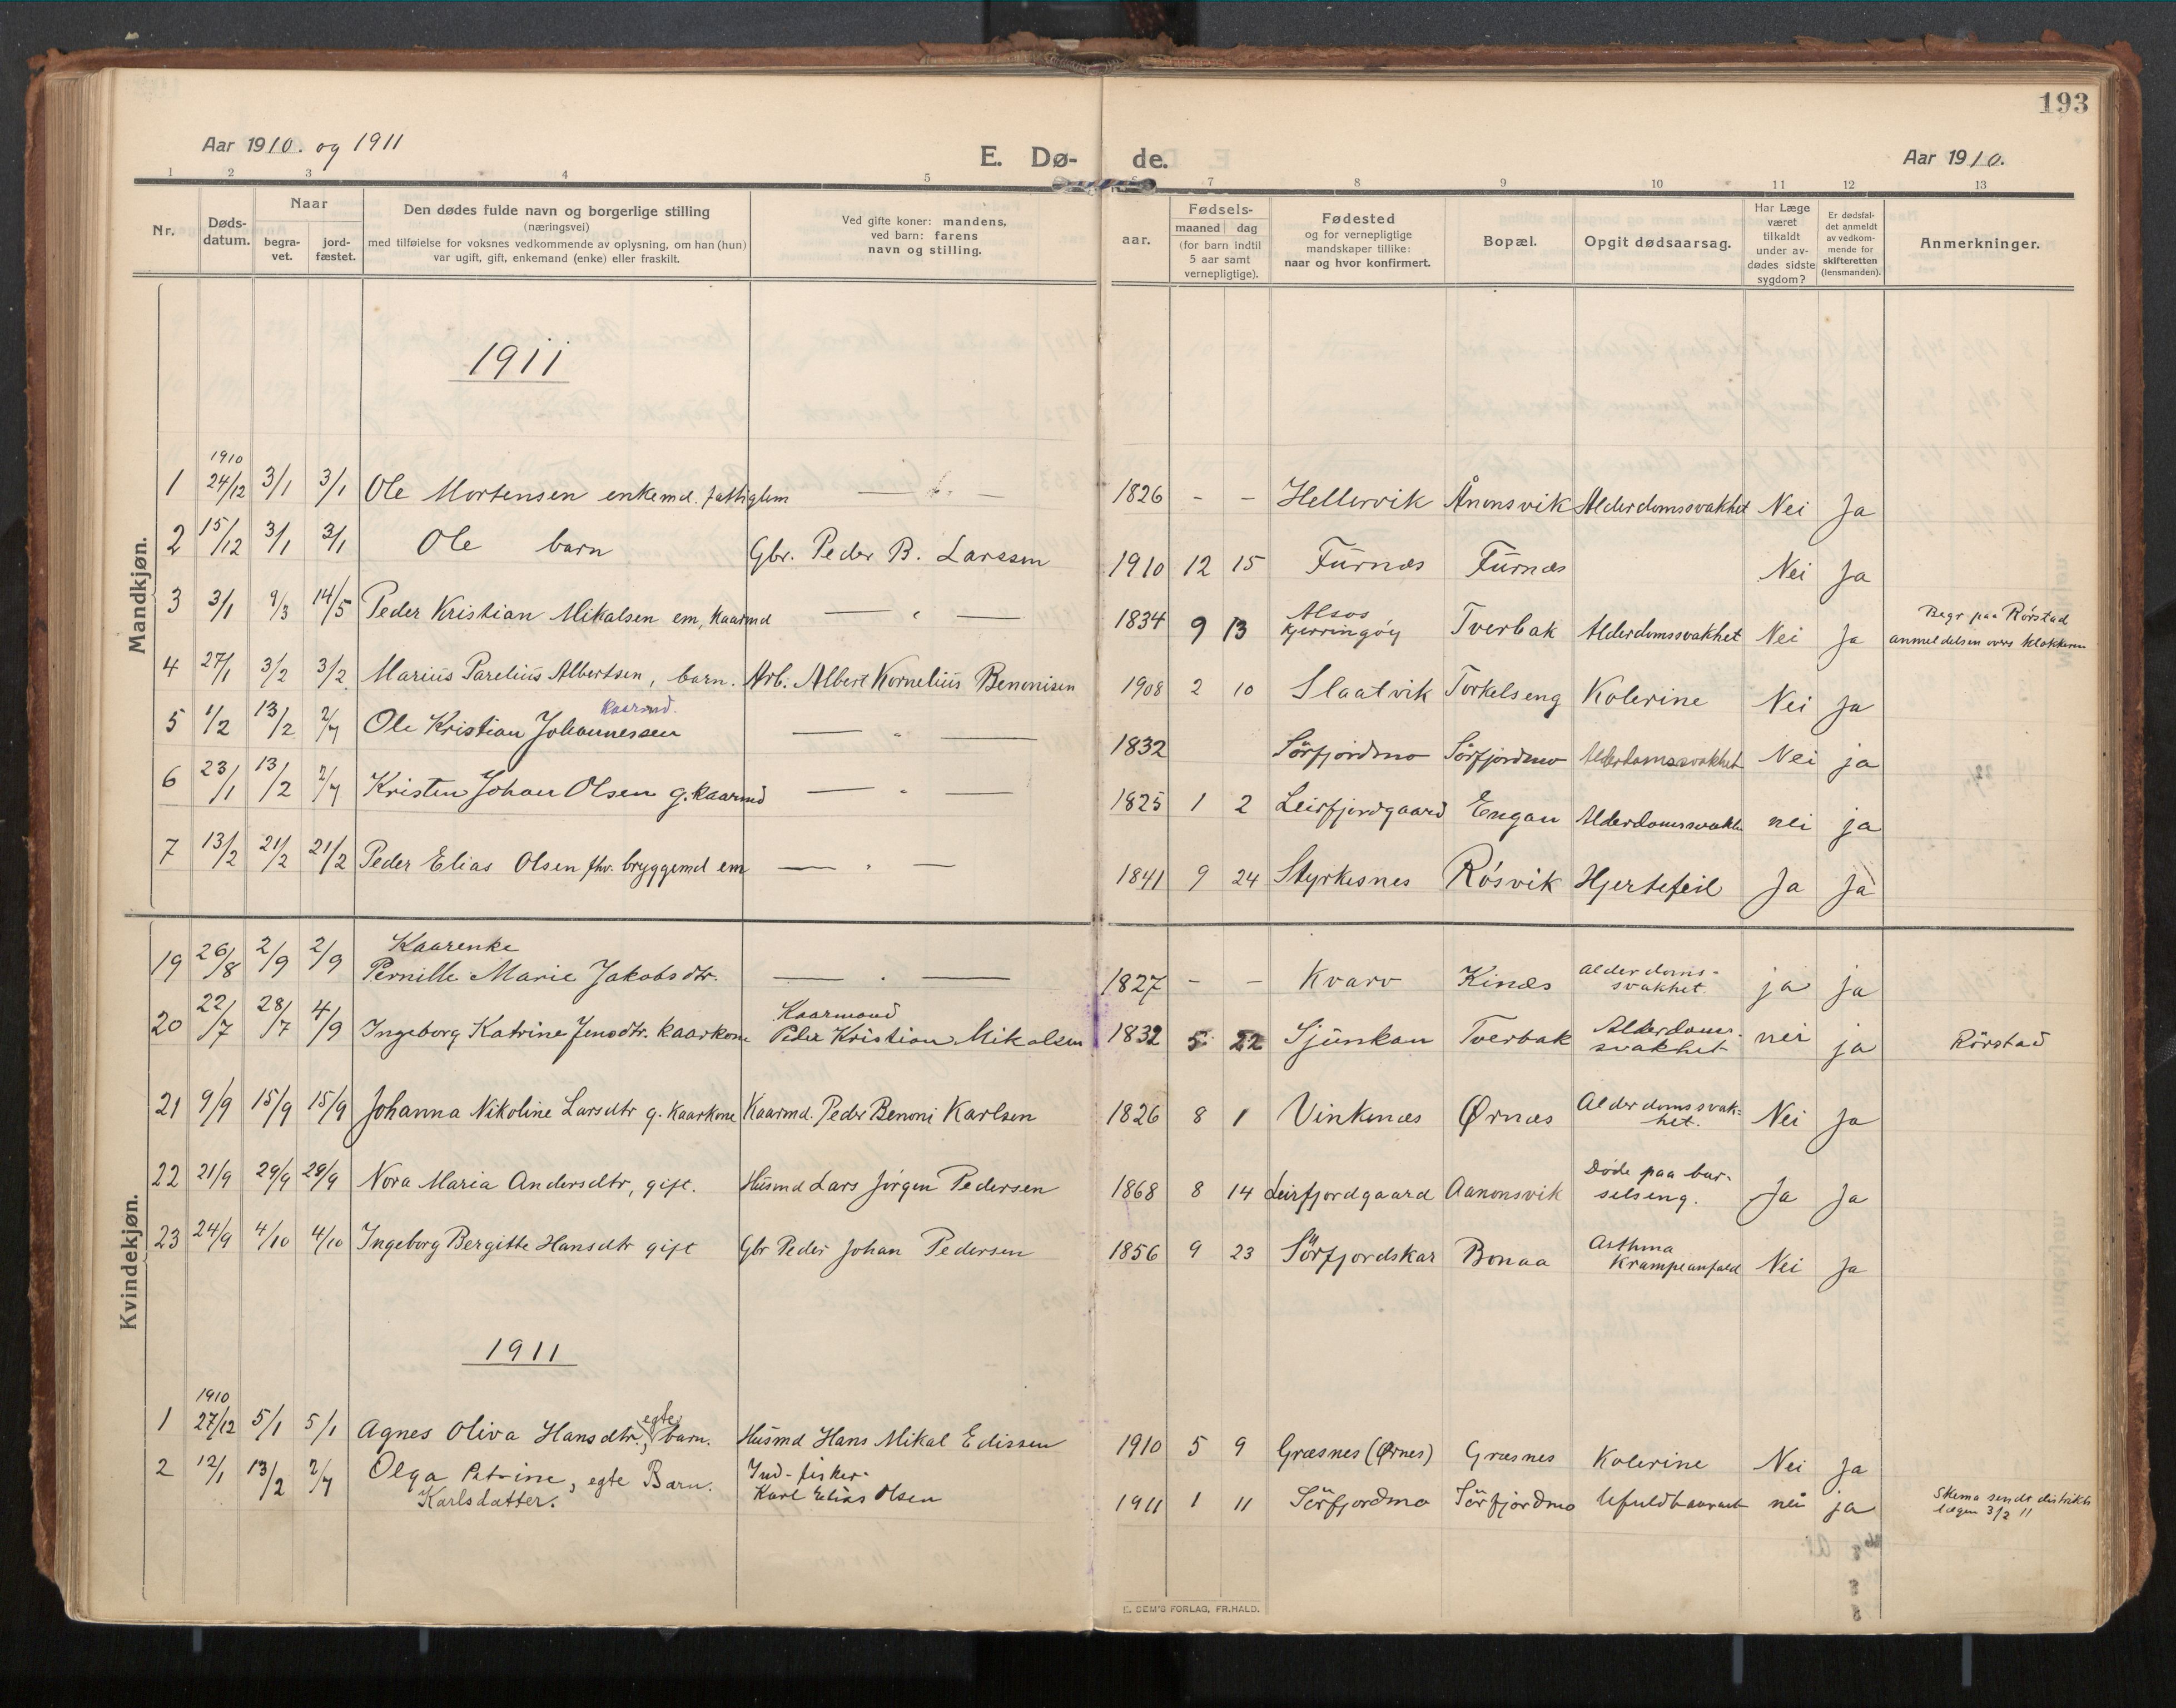 193
Aar 1910. og 1911
E. Dø- de.
Aar 1910.
1 2 3 4 5 7 8 9 10 11 12 13
Nr.
Døds-
datum.
Naar
begra-
vet.
jord-
fæstet.
Den dødes fulde navn og borgerlige stilling
(næringsvei)
med tilføielse for voksnes vedkommende av oplysning, om han (hun)
var ugift, gift, enkemand (enke) eller fraskilt.
Ved gifte koner: mandens,
ved barn: farens
navn og stilling.
aar.
Fødsels-
maaned dag
(for barn indtil
5 aar samt
vernepligtige).
Fødested
og for vernepligtige
mandskaper tillike:
naar og hvor konfirmert.
Bopæl.
Opgit dødsaarsag.
Har Læge
været
tilkaldt
under av-
dødes sidste
sygdom?
Er dødsfal-
det anmeldt
av vedkom-
mende for
skifteretten
(lensmanden).
Anmerkninger.
Mandkjøn.
1911
1910
1 24/12 3/1 3/1 Ole Mortensen enkemd. fattiglem — " — 1826 - - Hellervik Ånonsvik Alderdomssvakhet Nei Ja
2 15/12 3/1 3/1 Ole barn Gbr. Peder B. Larssen 1910 12 15 Furnæs Furnæs Nei Ja
3 3/1 9/3 14/5 Peder Kristian Mikalsen em, kaarmd — " — 1834 9 13 Alsos Kjerringøy Tverbak Alderdomssvakhet Nei Ja Begr paa Rørstad
anmeldelsen overs klokkeren
4 27/1 3/2 3/2 Marius Parelius Albertsen, barn. Arb. Albert Kornelius Benonisen 1908 2 10 Slaatvik Torkelseng Kolerine Nei Ja
kaarmd.
5 1/2 13/2 2/7 Ole Kristian Johannessen — " — 1832 Sörfjordmo Sörfjordmo Alderdomssvakhet Nei ja
6 23/1 13/2 2/7 Kristen Johan Olsen g. kaarmd — " — 1825 1 2 Leirfjordgaard Engan Alderdomssvakh nei ja
7 13/2 21/2 21/2 Peder Elias Olsen fhv. bryggemd em — " — 1841 9 24 Styrkesnes Røsvik Hjertefeil Ja Ja
Kvindekjøn.
Kaarenke
19 26/8 2/9 2/9 Pernille Marie Jakobsdtr. — " — 1827 - - Kvarv Kinæs Alderdoms-
svakhet. ja ja
Kaarmand
20 22/7 28/7 4/9 Ingeborg Katrine Jensdtr. kaarkone Peder Kristian Mikalsen 1832 5 22 Sjunkan Tverbak Alderdoms-
svakhet nei ja Rörstad
21 9/9 15/9 15/9 Johanna Nikoline Larsdtr g. kaarkone Kaarmd. Peder Benoni Karlsen 1826 8 1 Vinkenæs Ørnæs Alderdomssvak-
het. Nei Ja
22 21/9 29/9 29/9 Nora Maria Andersdtr, gift. Husmd Lars Jørgen Pedersen 1868 8 14 Leirfjordgaard Aanonsvik Döde paa bar-
selseng. Ja Ja
23 24/9 4/10 4/10 Ingeborg Bergitte Hansdtr gift Gbr Peder Johan Pedersen 1856 9 23 Sörfjordskar Bonaa Asthma
Krampeanfald Nei Ja
1911
1910
1 27/12 5/1 5/1 Agnes Oliva Hansdtr., egte barn. Husmd Hans Mikal Edissen 1910 5 9 Græsnes (Ørnes) Græsnes Kolerine Nei Ja
2 12/1 13/2 2/7 Olga Petrine, egte Barn. Ind- fisker- 1911 1 11 Sörfjordmo Sörfjordmo Ufuldbaaret nei ja Skema sendt distrikts
Karlsdatter. Karl Elias Olsen lægen 3/2 11
E. SEM'S FORLAG, FR.HALD.